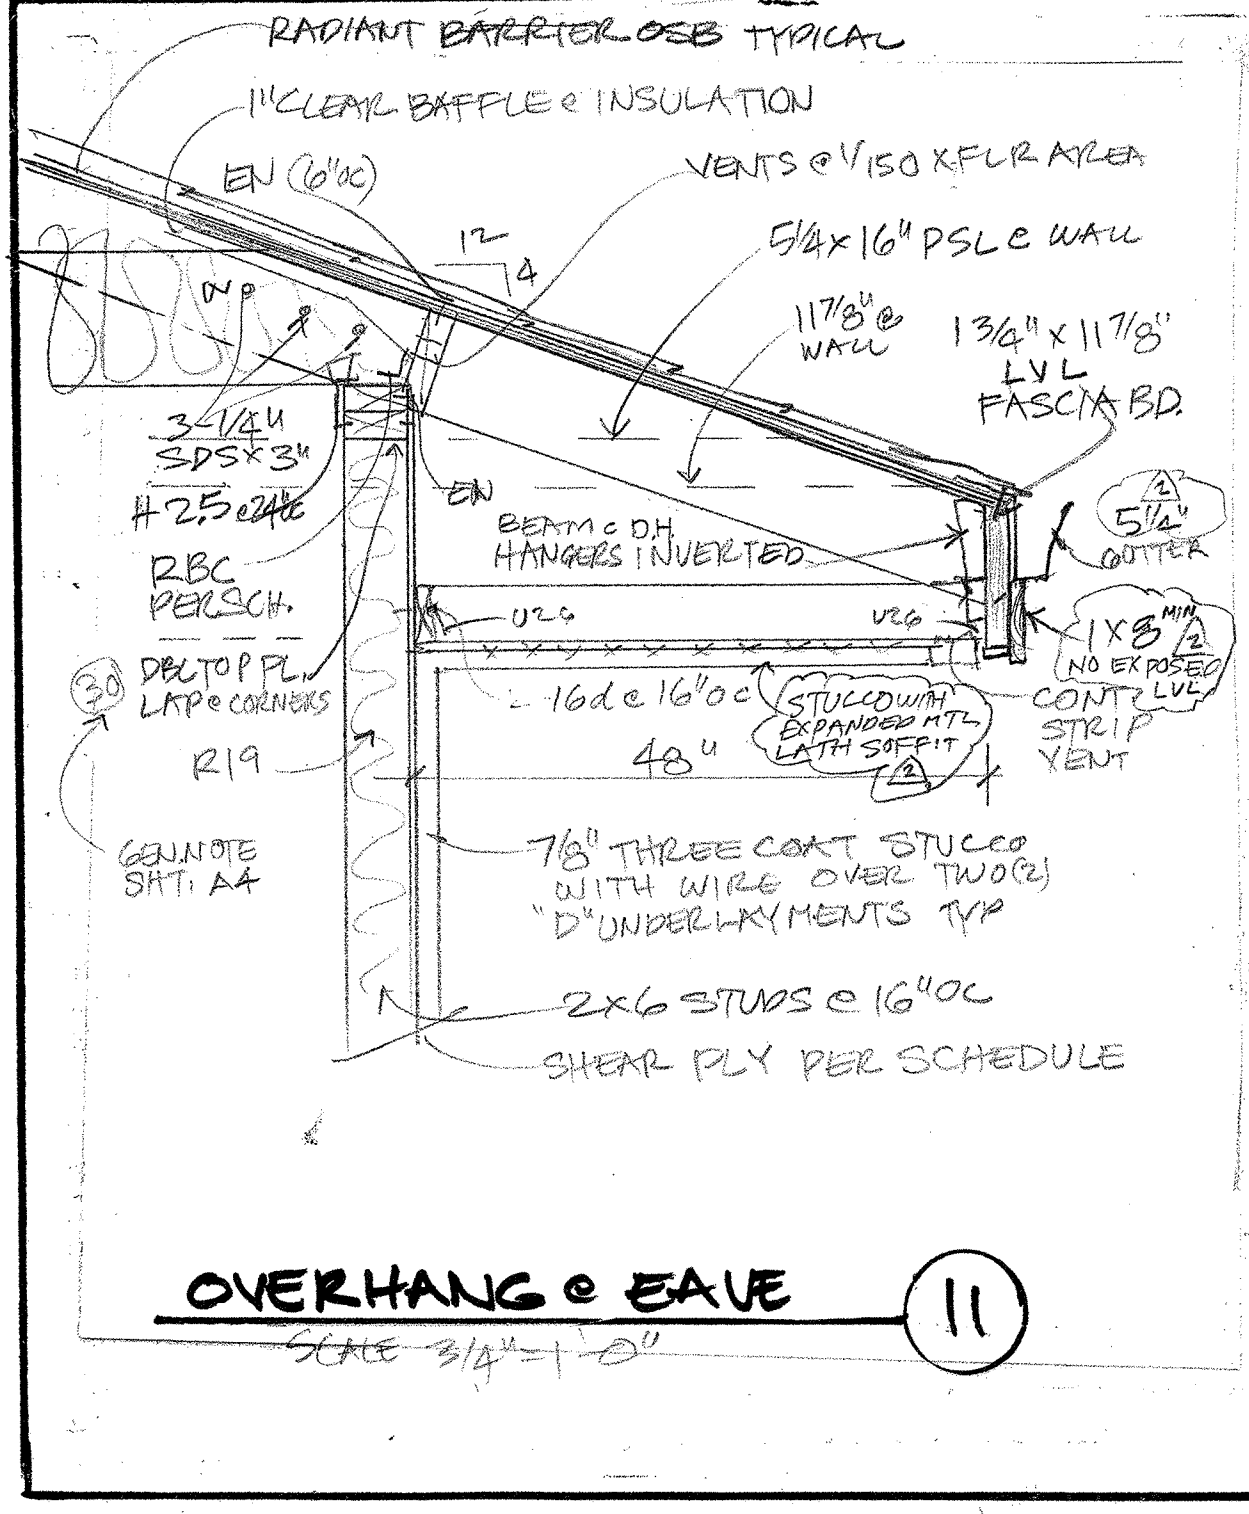 RADIANT BARRIER OSB TYPICAL
1" CLEAR BAFFLE @ INSULATION
EN (6"OC)
VENTS @ 1/150 X FLR AREA
12
4
5 1/4 x 16" PSL @ WALL
11 7/8" @
WALL
1 3/4" x 11 7/8"
LVL
FASCIA BD.
3-1/4"
SDS x 3"
H 2.5 @ 24"OC
EN
BEAM @ D.H.
HANGERS INVERTED
2
5 1/4"
GUTTER
RBC
PER SCH.
U26
U26
1 X 8 MIN
2
NO EXPOSED
LVL
30
DBL TOP PL.
LAP @ CORNERS
16d @ 16"oc
STUCCO WITH
EXPANDED MTL
LATH SOFFIT
2
CONT.
STRIP
VENT
R19
48"
GEN. NOTE
SHT: A4
7/8" THREE COAT STUCCO
WITH WIRE OVER TWO (2)
"D" UNDERLAYMENTS TYP
2x6 STUDS @ 16"OC
SHEAR PLY PER SCHEDULE
OVERHANG @ EAVE
11
SCALE 3/4"=1'-0"